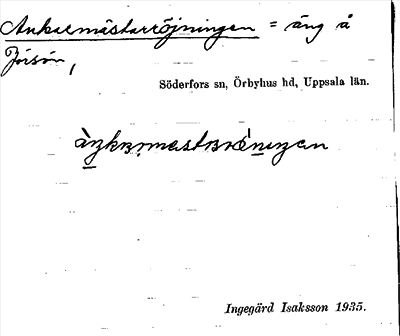 Ankarmästarröjningen = äng å
Jörsön,
Söderfors sn, Örbyhus hd, Uppsala län.
Ingegärd Isaksson 1935.